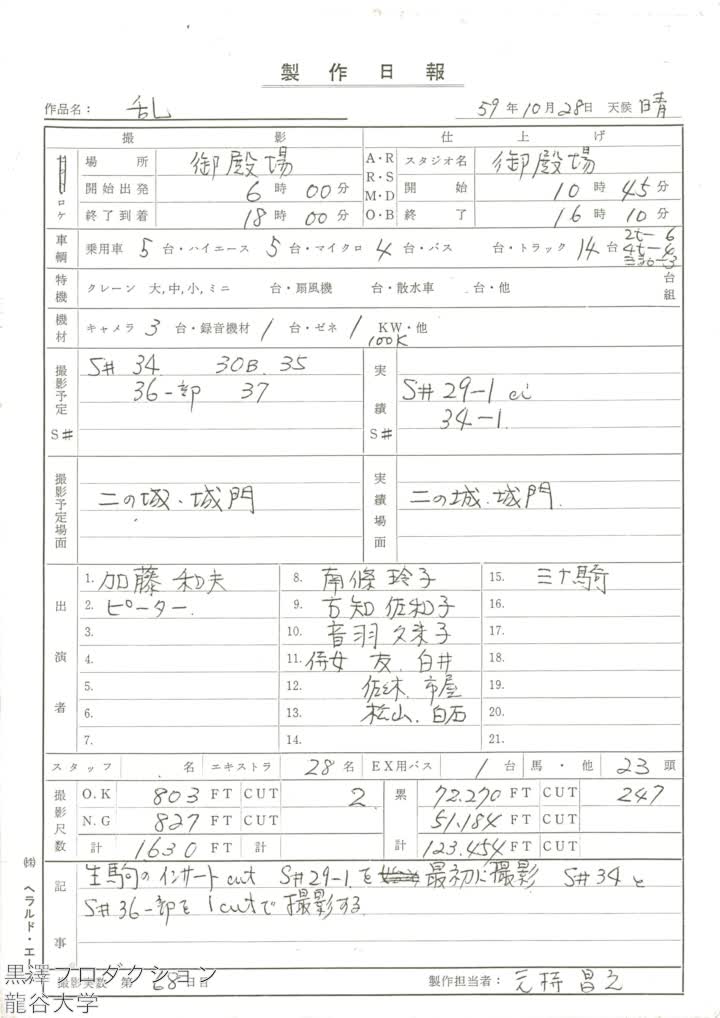 製作日報
作品名： 乱 59年10月28日 天候 晴
撮影 仕上げ
ロケ 場所 御殿場 A・R R・S M・D O・B スタジオ名 御殿場
開始出発 6時00分 開始 10時45分
終了到着 18時00分 終了 16時10分
車輌 乗用車 5台・ハイエース 5台・マイクロ 4台・バス 台・トラック 14台 2t-6 4t-4
特機 クレーン 大,中,小,ミニ 台・扇風機 台・散水車 台・他 台組
機材 キャメラ 3台・録音機材 1台・ゼネ 1 KW・他
100K
撮影予定 S# S# 34 30B. 35 実績 S# S# 29-1
36一部 37 34-1.
撮影予定場面 二の城、城門 実績場面 二の城、城門.
出演者
1. 加藤和夫 8. 南條玲子 15. 三十騎
2. ピーター. 9. 古知佐和子 16.
3. 10. 音羽久米子 17.
4. 11. 侍女 友. 白井 18.
5. 12. 佐々木. 市屋 19.
6. 13. 松山. 白石 20.
7. 14. 21.
スタッフ 名 エキストラ 28名 EX用バス 1台 馬・他 23頭
撮影尺数 O.K 803 FT CUT 2 累 72.270 FT CUT 247
N.G 827 FT CUT 51.184 FT CUT
計 1630 FT 計 計 123.454 FT CUT
記事 生駒のインサートcut S#29-1.を最初に撮影 S#34と
S#36一部を1cutで撮影する.
撮影実数 第 68日目 製作担当者： 元持昌之
㈱ ヘラルド・エース
黒澤プロダクション
龍谷大学